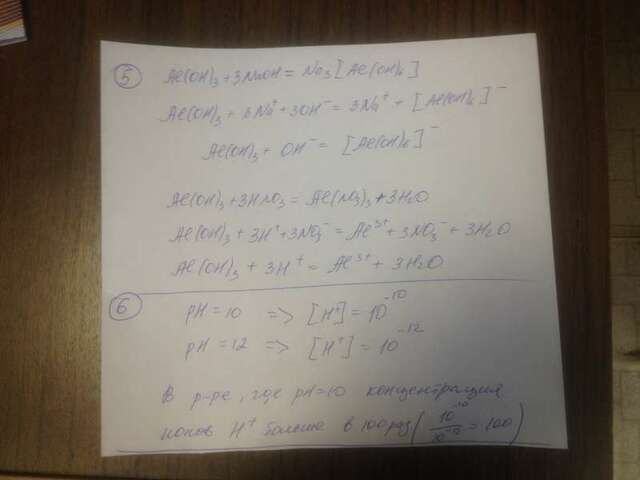 5
Al(OH)3 + 3NaOH = Na3[Al(OH)6]
Al(OH)3 + 3Na+ + 3OH- = 3Na+ + [Al(OH)6]-
Al(OH)3 + OH- = [Al(OH)4]-
Al(OH)3 + 3HNO3 = Al(NO3)3 + 3H2O
Al(OH)3 + 3H+ + 3NO3- = Al3+ + 3NO3- + 3H2O
Al(OH)3 + 3H+ = Al3+ + 3H2O
6
pH = 10 => [H+] = 10-10
pH = 12 => [H+] = 10-12
В р-ре, где pH = 10 концентрация
ионов H+ больше в 100 раз